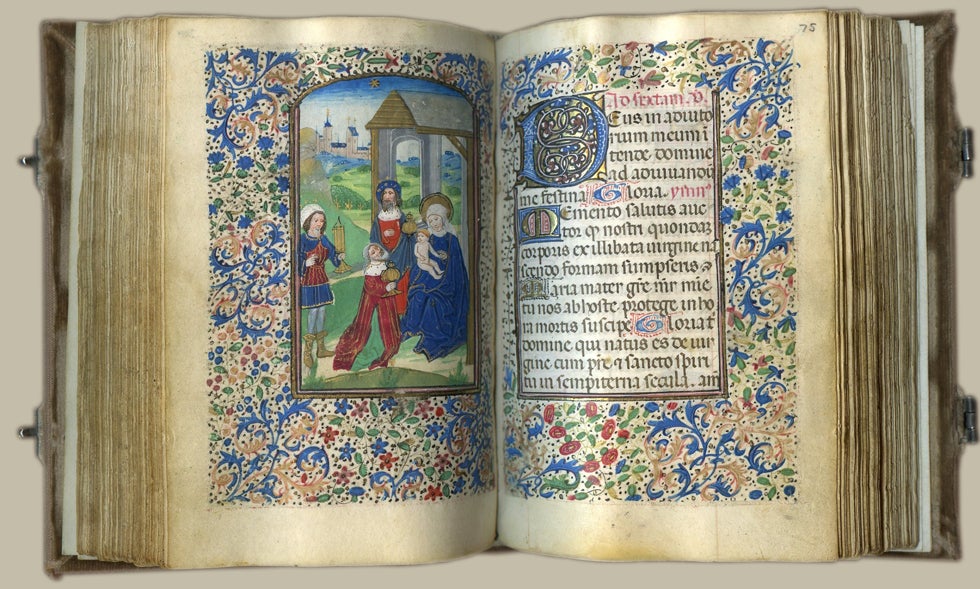 75
Ad sextam. v.
Deus in adiuto
rium meum i
tende domine
ad adiuuandū
me festina Gloria. ymn9
Memento salutis auc
tor q nostri quondaȝ
corporis ex illibata uirgine na
scendo formam sumpseris
Maria mater grē mr̄ mie
tu nos ab hoste protege in ho
ra mortis suscipe Gloria t
domine qui natus es de uir
gine cum pr̄e ⁊ sancto spiri
tu in sempiterna secula. am